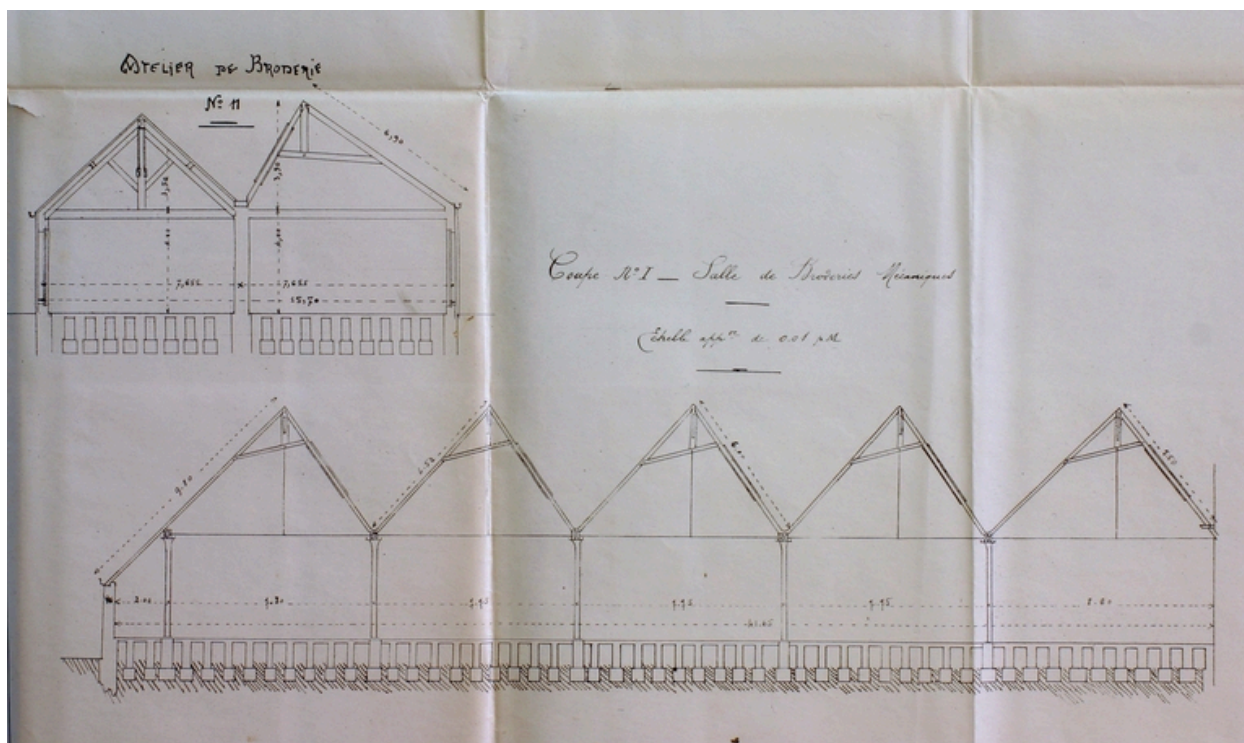 ATELIER DE BRODERIE
N° 11
6,90
3,90
3,50
4,00
4,00
7,655
7,655
15,70
Coupe N° I — Salle de Broderies Mécaniques
Echelle appve de 0.01 p M
9.80
6.00
2.00
7.80
7.95
7.95
7.95
8.80